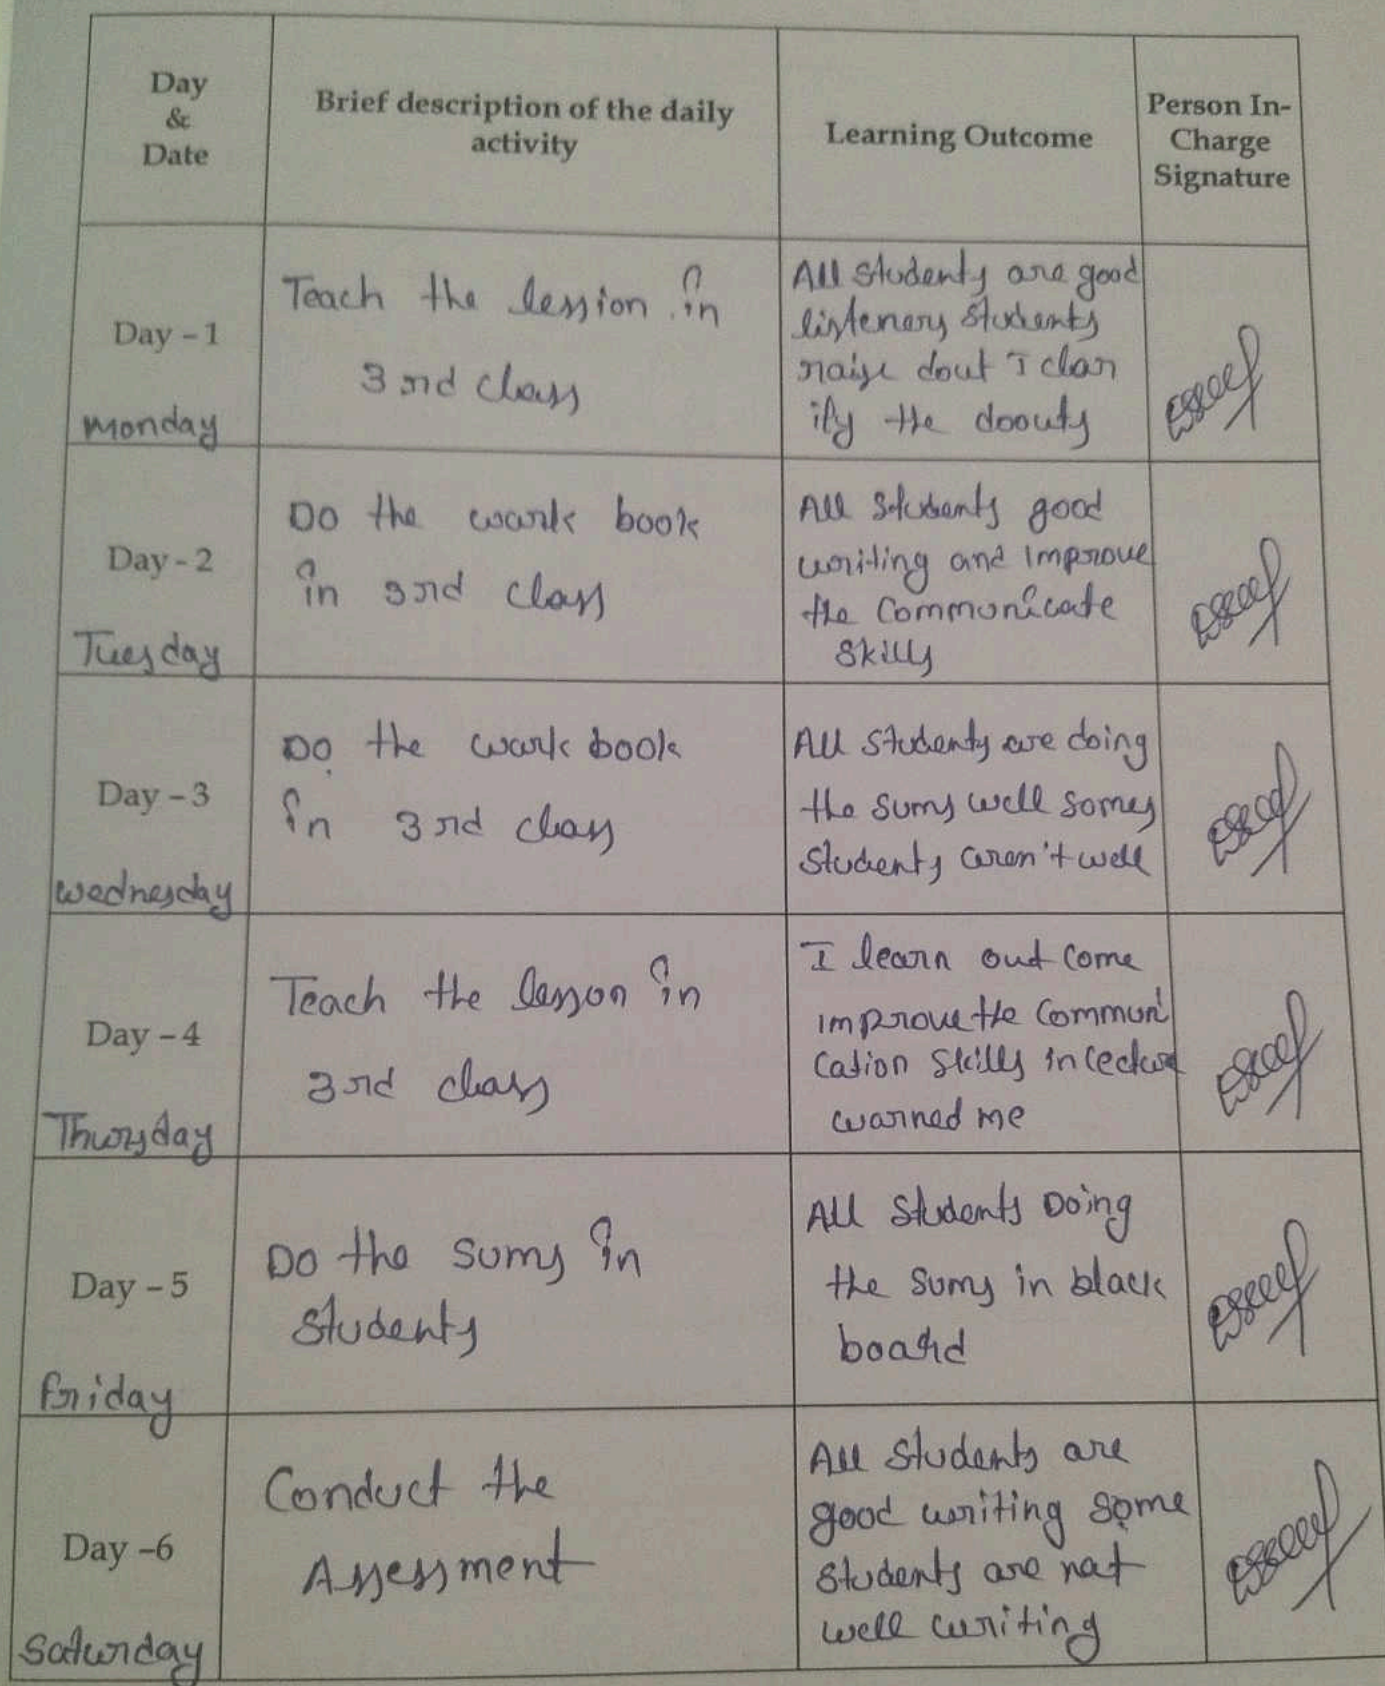 Day
&
Date
Brief description of the daily
activity
Learning Outcome
Person In-
Charge
Signature
Day - 1
Monday
Teach the lession in
3rd class
All students are good
listeners students
raise dout I clar
ify the doouts
Day - 2
Tuesday
Do the work book
in 3rd class
All students good
writing and improve
the communicate
skills
Day - 3
Wednesday
Do the work book
in 3rd class
All students are doing
the sums well somes
students aren't well
Day - 4
Thursday
Teach the lesson in
3rd class
I learn out come
improve the communi
cation skills in
warned me
Day - 5
Friday
Do the sums in
students
All students Doing
the sums in black
board
Day -6
Saturday
Conduct the
Assessment
All students are
good writing some
students are not
well writing